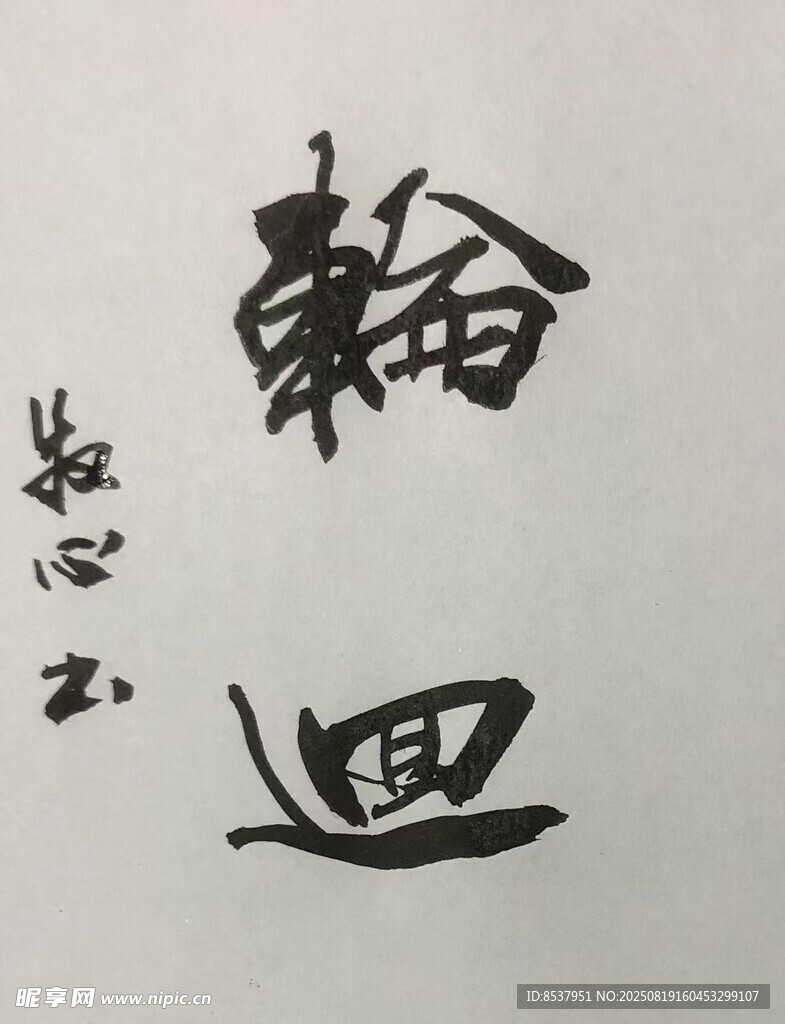 輪迴
牧心书
昵享网 www.nipic.cn
ID:8537951 NO:20250819160453299107